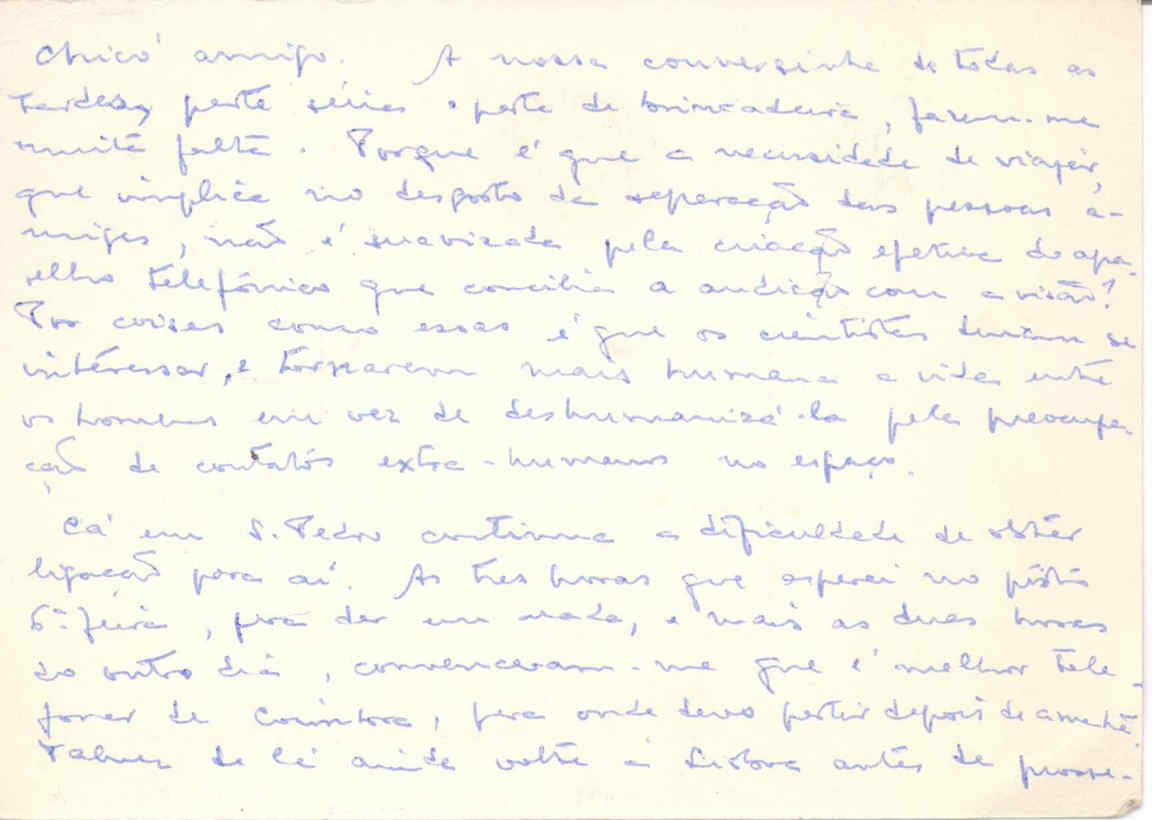 Chico amigo. A nossa conversinha de todas as
tardes, parte séria e parte de brincadeira, fazem-me
muita falta. Porque é que a necessidade de viajar,
que implica no desgosto da separação das pessoas a-
migas, não é suavizada pela criação efetiva do apa-
relho telefónico que concilia a audição com a visão?
Por coisas como essas é que os cientistas deviam se
interessar, e tornarem mais humana a vida entre
os homens em vez de deshumanizá-la pela preocupa-
ção de contatos extra-humanos no espaço.
Cá em S. Pedro continua a dificuldade de obter
ligação para aí. As tres horas que esperei no posto
6ª feira, pra dar em nada, e mais as duas horas
do outro dia, convenceram-me que é melhor tele-
fonar de Coimbra, para onde devo partir depois de amanhã.
Talvez de lá ainda volte a Lisboa antes de prosse-